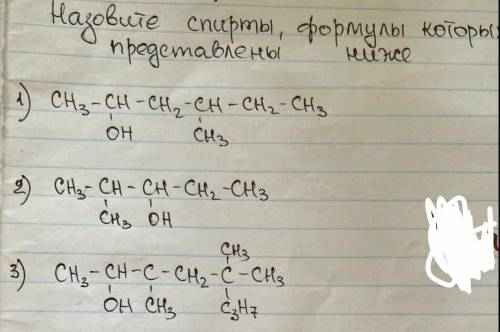 Назовите спирты, формулы которы
представлены ниже
1) CH₃-CH-CH₂-CH-CH₂-CH₃
OH CH₃
2) CH₃-CH-CH-CH₂-CH₃
CH₃ OH
CH₃
3) CH₃-CH-C-CH₂-C-CH₃
OH CH₃ C₃H₇